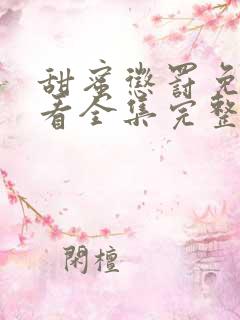 甜蜜惩罚免
看全集完整
閑檀